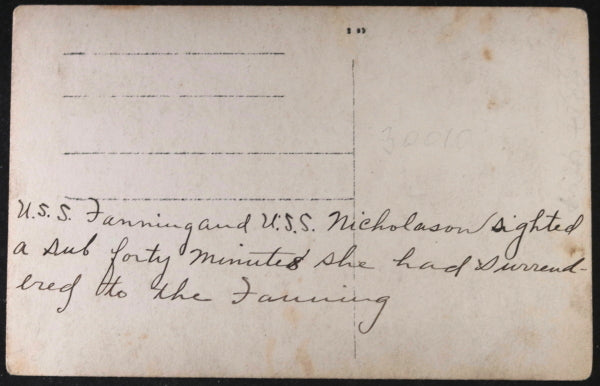 30010
U.S.S. Fanning and U.S.S. Nicholason sighted
a sub forty minutes she had surrend-
ered to the Fanning